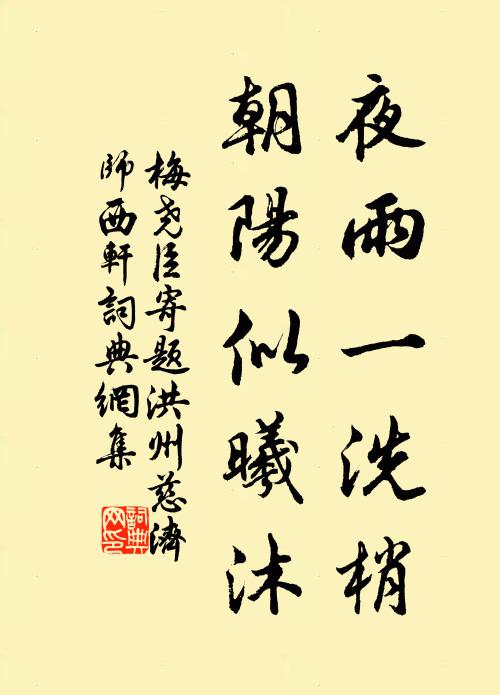 夜雨一洗梢
朝陽似曦沐
梅堯臣寄題洪州慈濟
師西軒詞典網集
詞典
网印